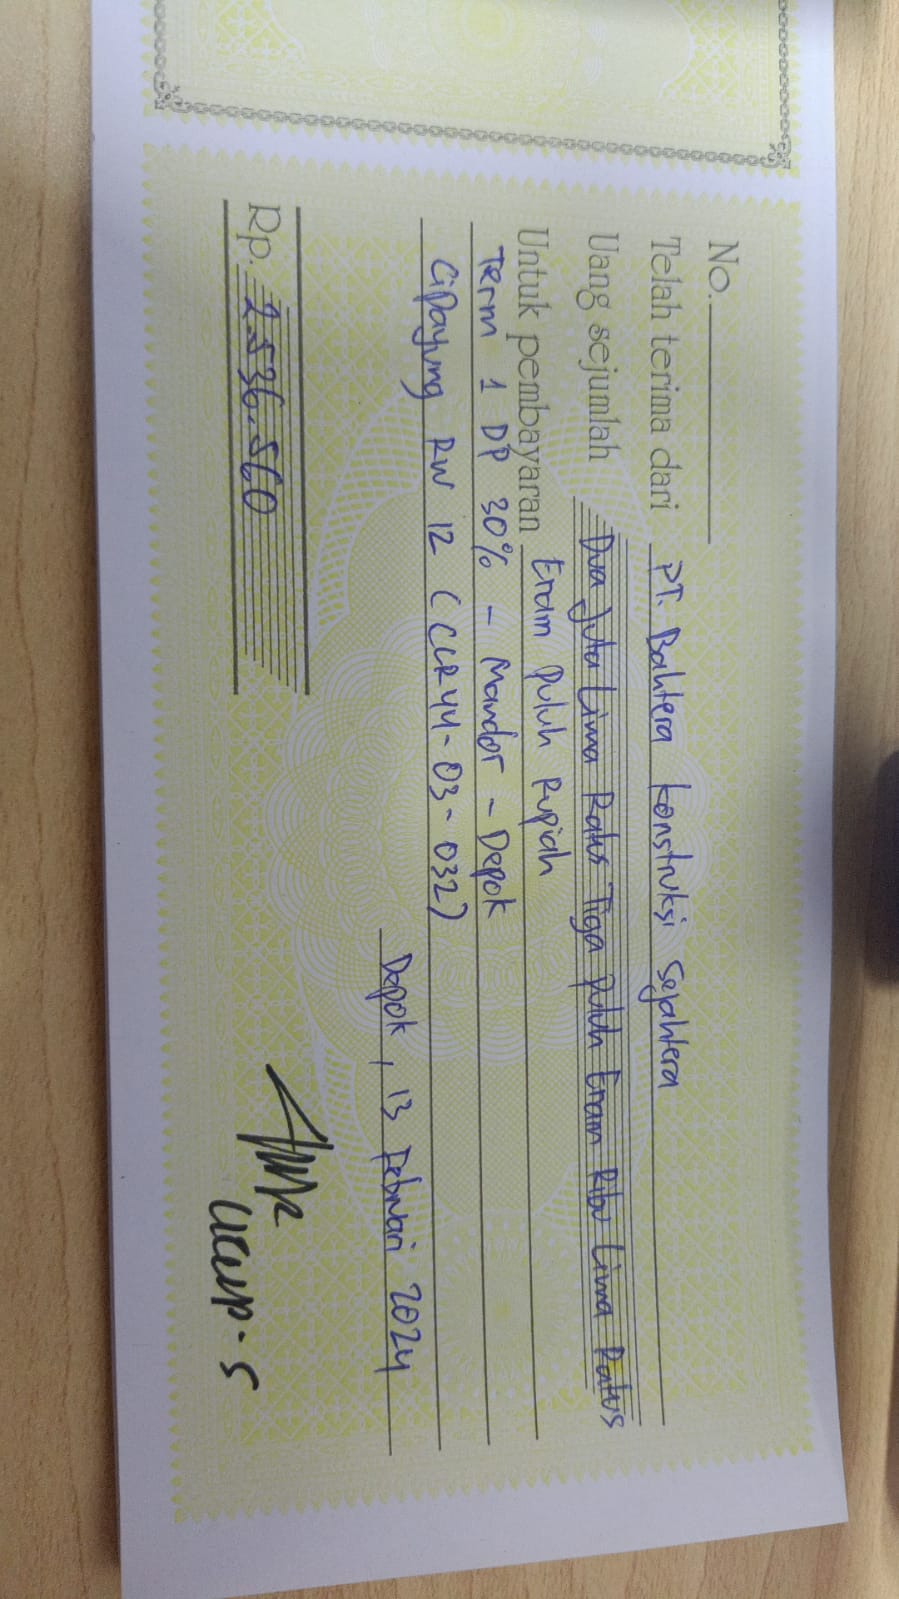 No.
Telah terima dari PT. Bahtera Konstruksi Sejahtera
Uang sejumlah Dua Juta Lima Ratus Tiga Puluh Enam Ribu Lima Ratus
Enam Puluh Rupiah
Untuk pembayaran
Term 1 DP 30% - Mandor - Depok
Cipayung RW 12 (CCR44-03-032)
Depok, 13 Februari 2024
Rp. 2.536.560
Ucup. S